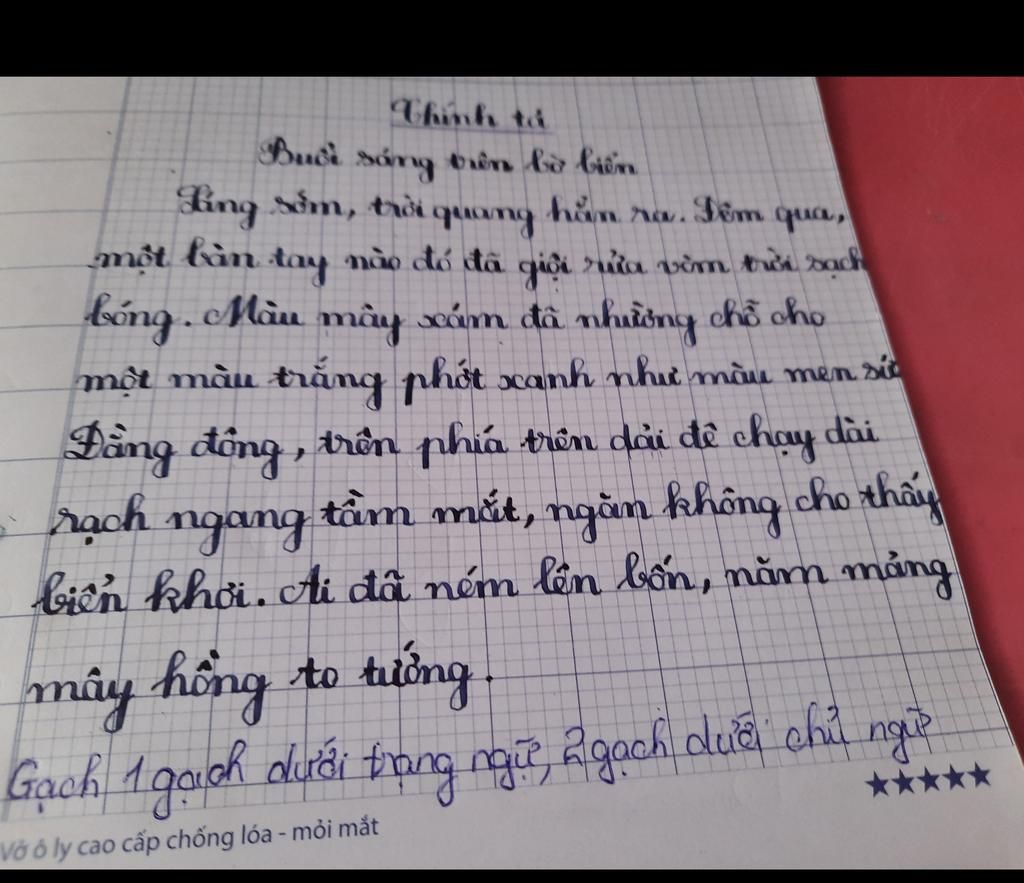 Chính tả
Buổi sáng trên bờ biển
Sáng sớm, trời quang hẳn ra. Đêm qua,
một bàn tay nào đó đã giội rửa vòm trời sạch
bóng. Màu mây xám đã nhường chỗ cho
một màu trắng phớt xanh như màu men sứ
Đằng đông, trên phía trên dải đê chạy dài
rạch ngang tầm mắt, ngăn không cho thấy
biển khơi. Ai đã ném lên bốn, năm mảng
mây hồng to tướng.
Gạch 1 gạch dưới trạng ngữ, 2 gạch dưới chủ ngữ
★★★★★
Vở ô ly cao cấp chống lóa - mỏi mắt